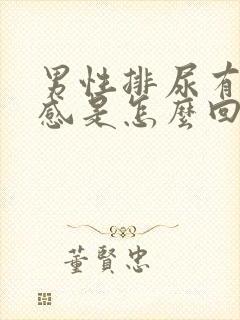 男性排尿有
感是怎麼回
董賢忠